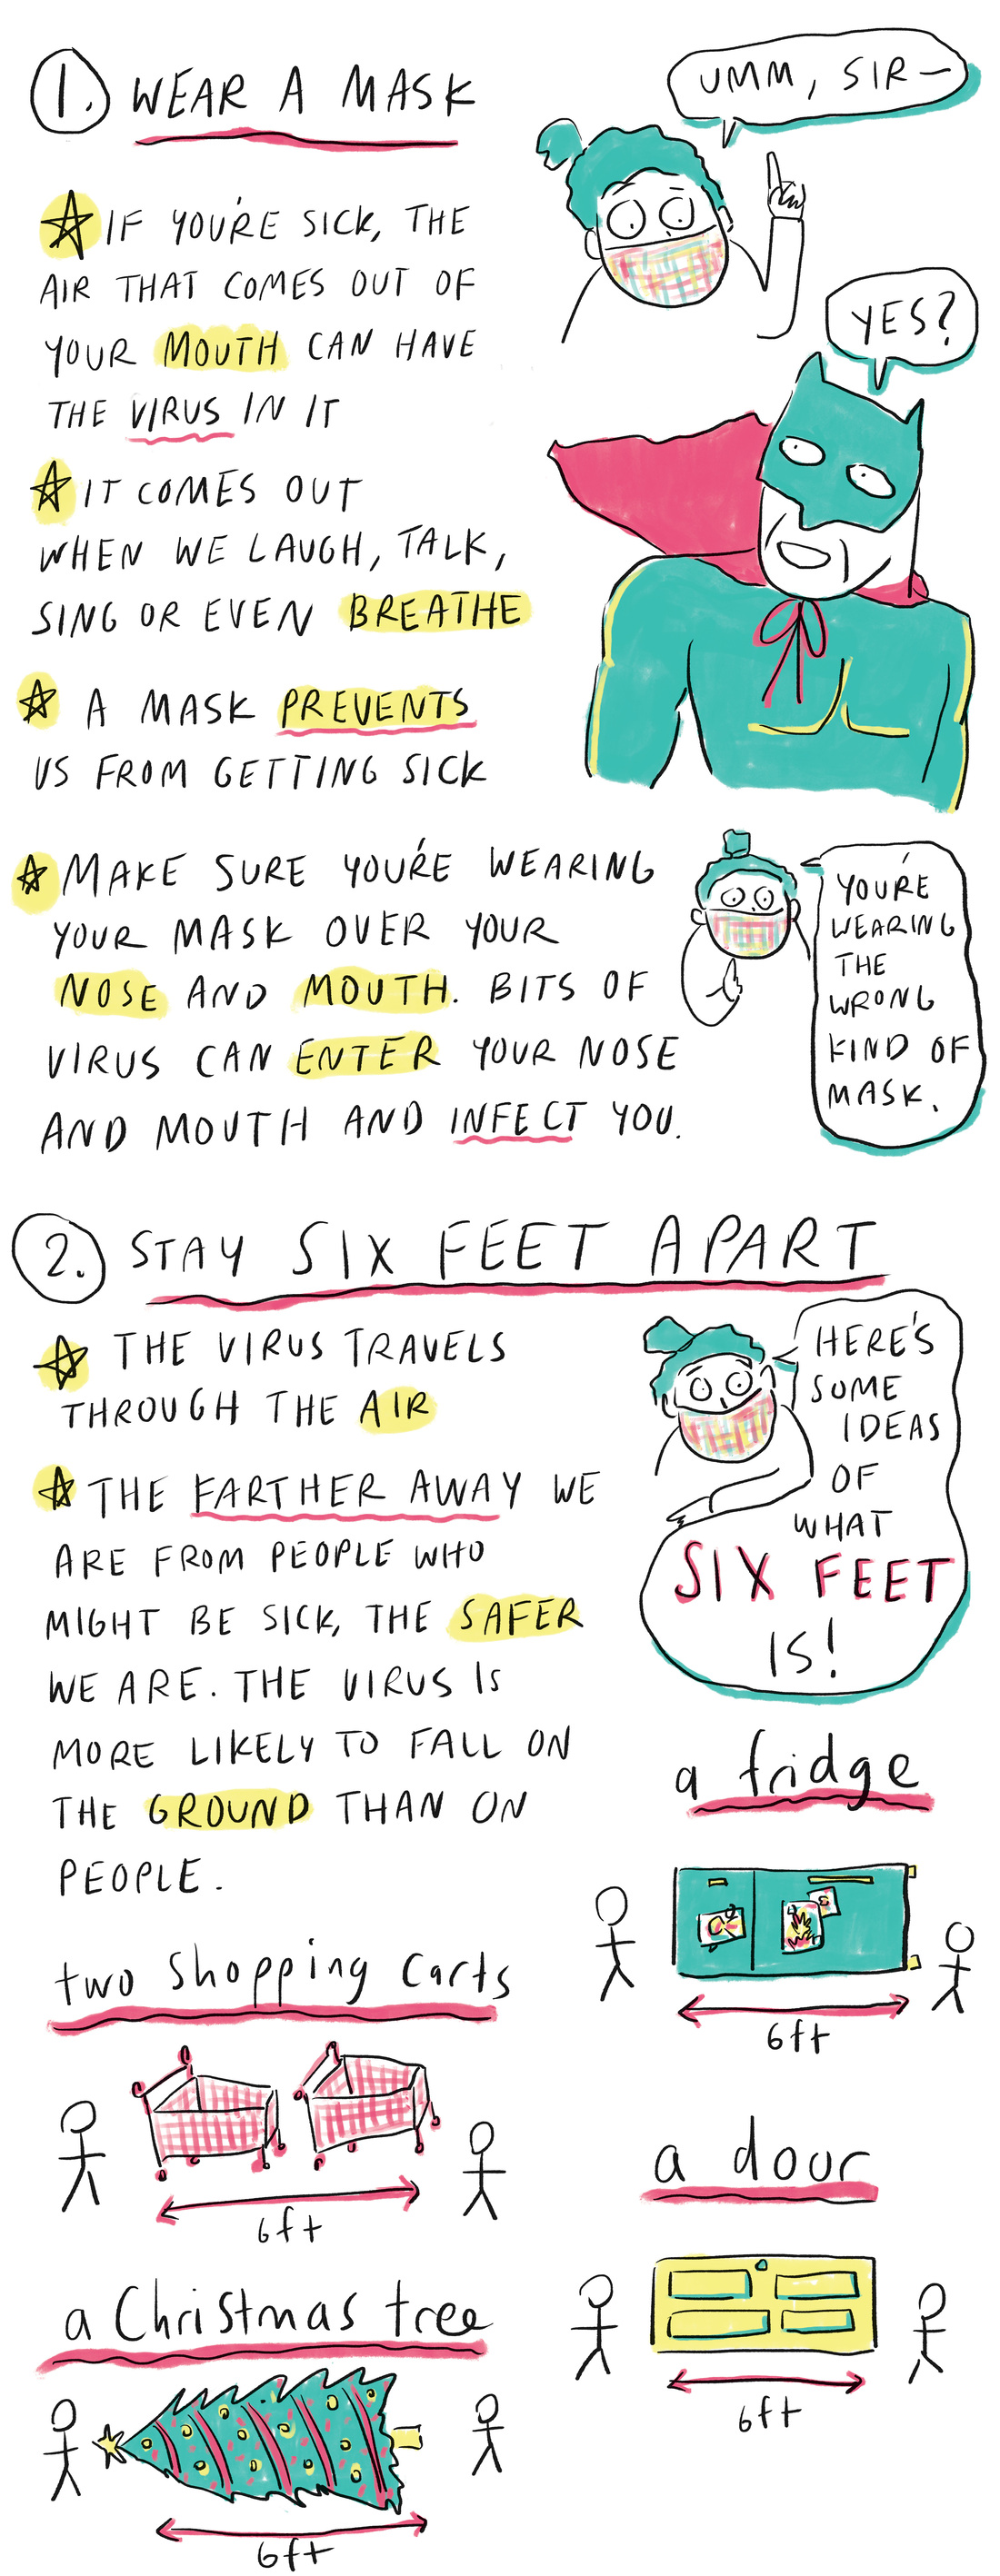 1. WEAR A MASK
UMM, SIR—
YES?
☆ IF YOU'RE SICK, THE
AIR THAT COMES OUT OF
YOUR MOUTH CAN HAVE
THE VIRUS IN IT
☆ IT COMES OUT
WHEN WE LAUGH, TALK,
SING OR EVEN BREATHE
☆ A MASK PREVENTS
US FROM GETTING SICK
☆ MAKE SURE YOU'RE WEARING
YOUR MASK OVER YOUR
NOSE AND MOUTH. BITS OF
VIRUS CAN ENTER YOUR NOSE
AND MOUTH AND INFECT YOU.
YOU'RE
WEARING
THE
WRONG
KIND OF
MASK.
2. STAY SIX FEET APART
☆ THE VIRUS TRAVELS
THROUGH THE AIR
☆ THE FARTHER AWAY WE
ARE FROM PEOPLE WHO
MIGHT BE SICK, THE SAFER
WE ARE. THE VIRUS IS
MORE LIKELY TO FALL ON
THE GROUND THAN ON
PEOPLE.
HERE'S
SOME
IDEAS
OF
WHAT
SIX FEET
IS!
a fridge
6ft
two shopping carts
6ft
a door
6ft
a Christmas tree
6ft